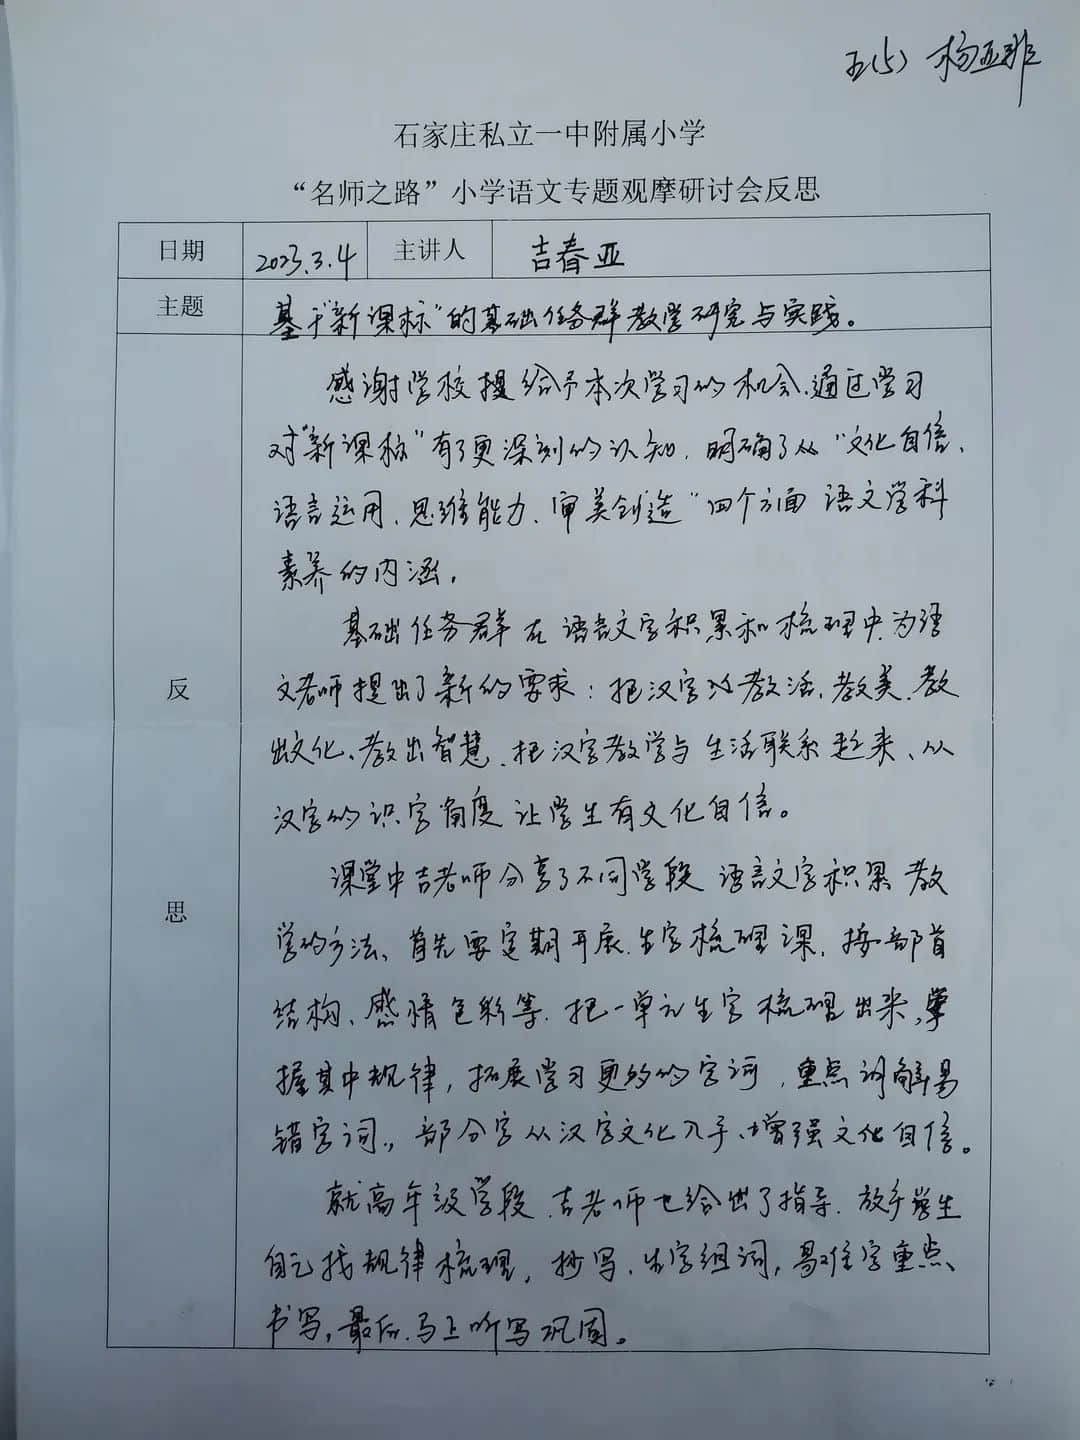 五(5) 杨亚非
石家庄私立一中附属小学
“名师之路”小学语文专题观摩研讨会反思
日期 2023.3.4 主讲人 吉春亚
主题 基于“新课标”的基础任务群教学研究与实践。
反思
感谢学校提给予本次学习的机会,通过学习
对“新课标”有了更深刻的认知,明确了从“文化自信、
语言运用、思维能力、审美创造”四个方面语文学科
素养的内涵。
基础任务群在语言文字积累和梳理中,为语
文老师提出了新的要求:把汉字教活、教美、教
出文化、教出智慧,把汉字教学与生活联系起来、从
汉字的识字角度让学生有文化自信。
课堂中吉老师分享了不同学段语言文字积累教
学的方法、首先要定期开展生字梳理课,按部首
结构、感情色彩等,把一单元生字梳理出来,掌
握其中规律,拓展学习更多的字词,重点讲解易
错字词,部分字从汉字文化入手、增强文化自信。
就高年级学段,吉老师也给出了指导,放手学生
自己找规律梳理,抄写、生字组词,易难字重点、
书写,最后,马上听写巩固。